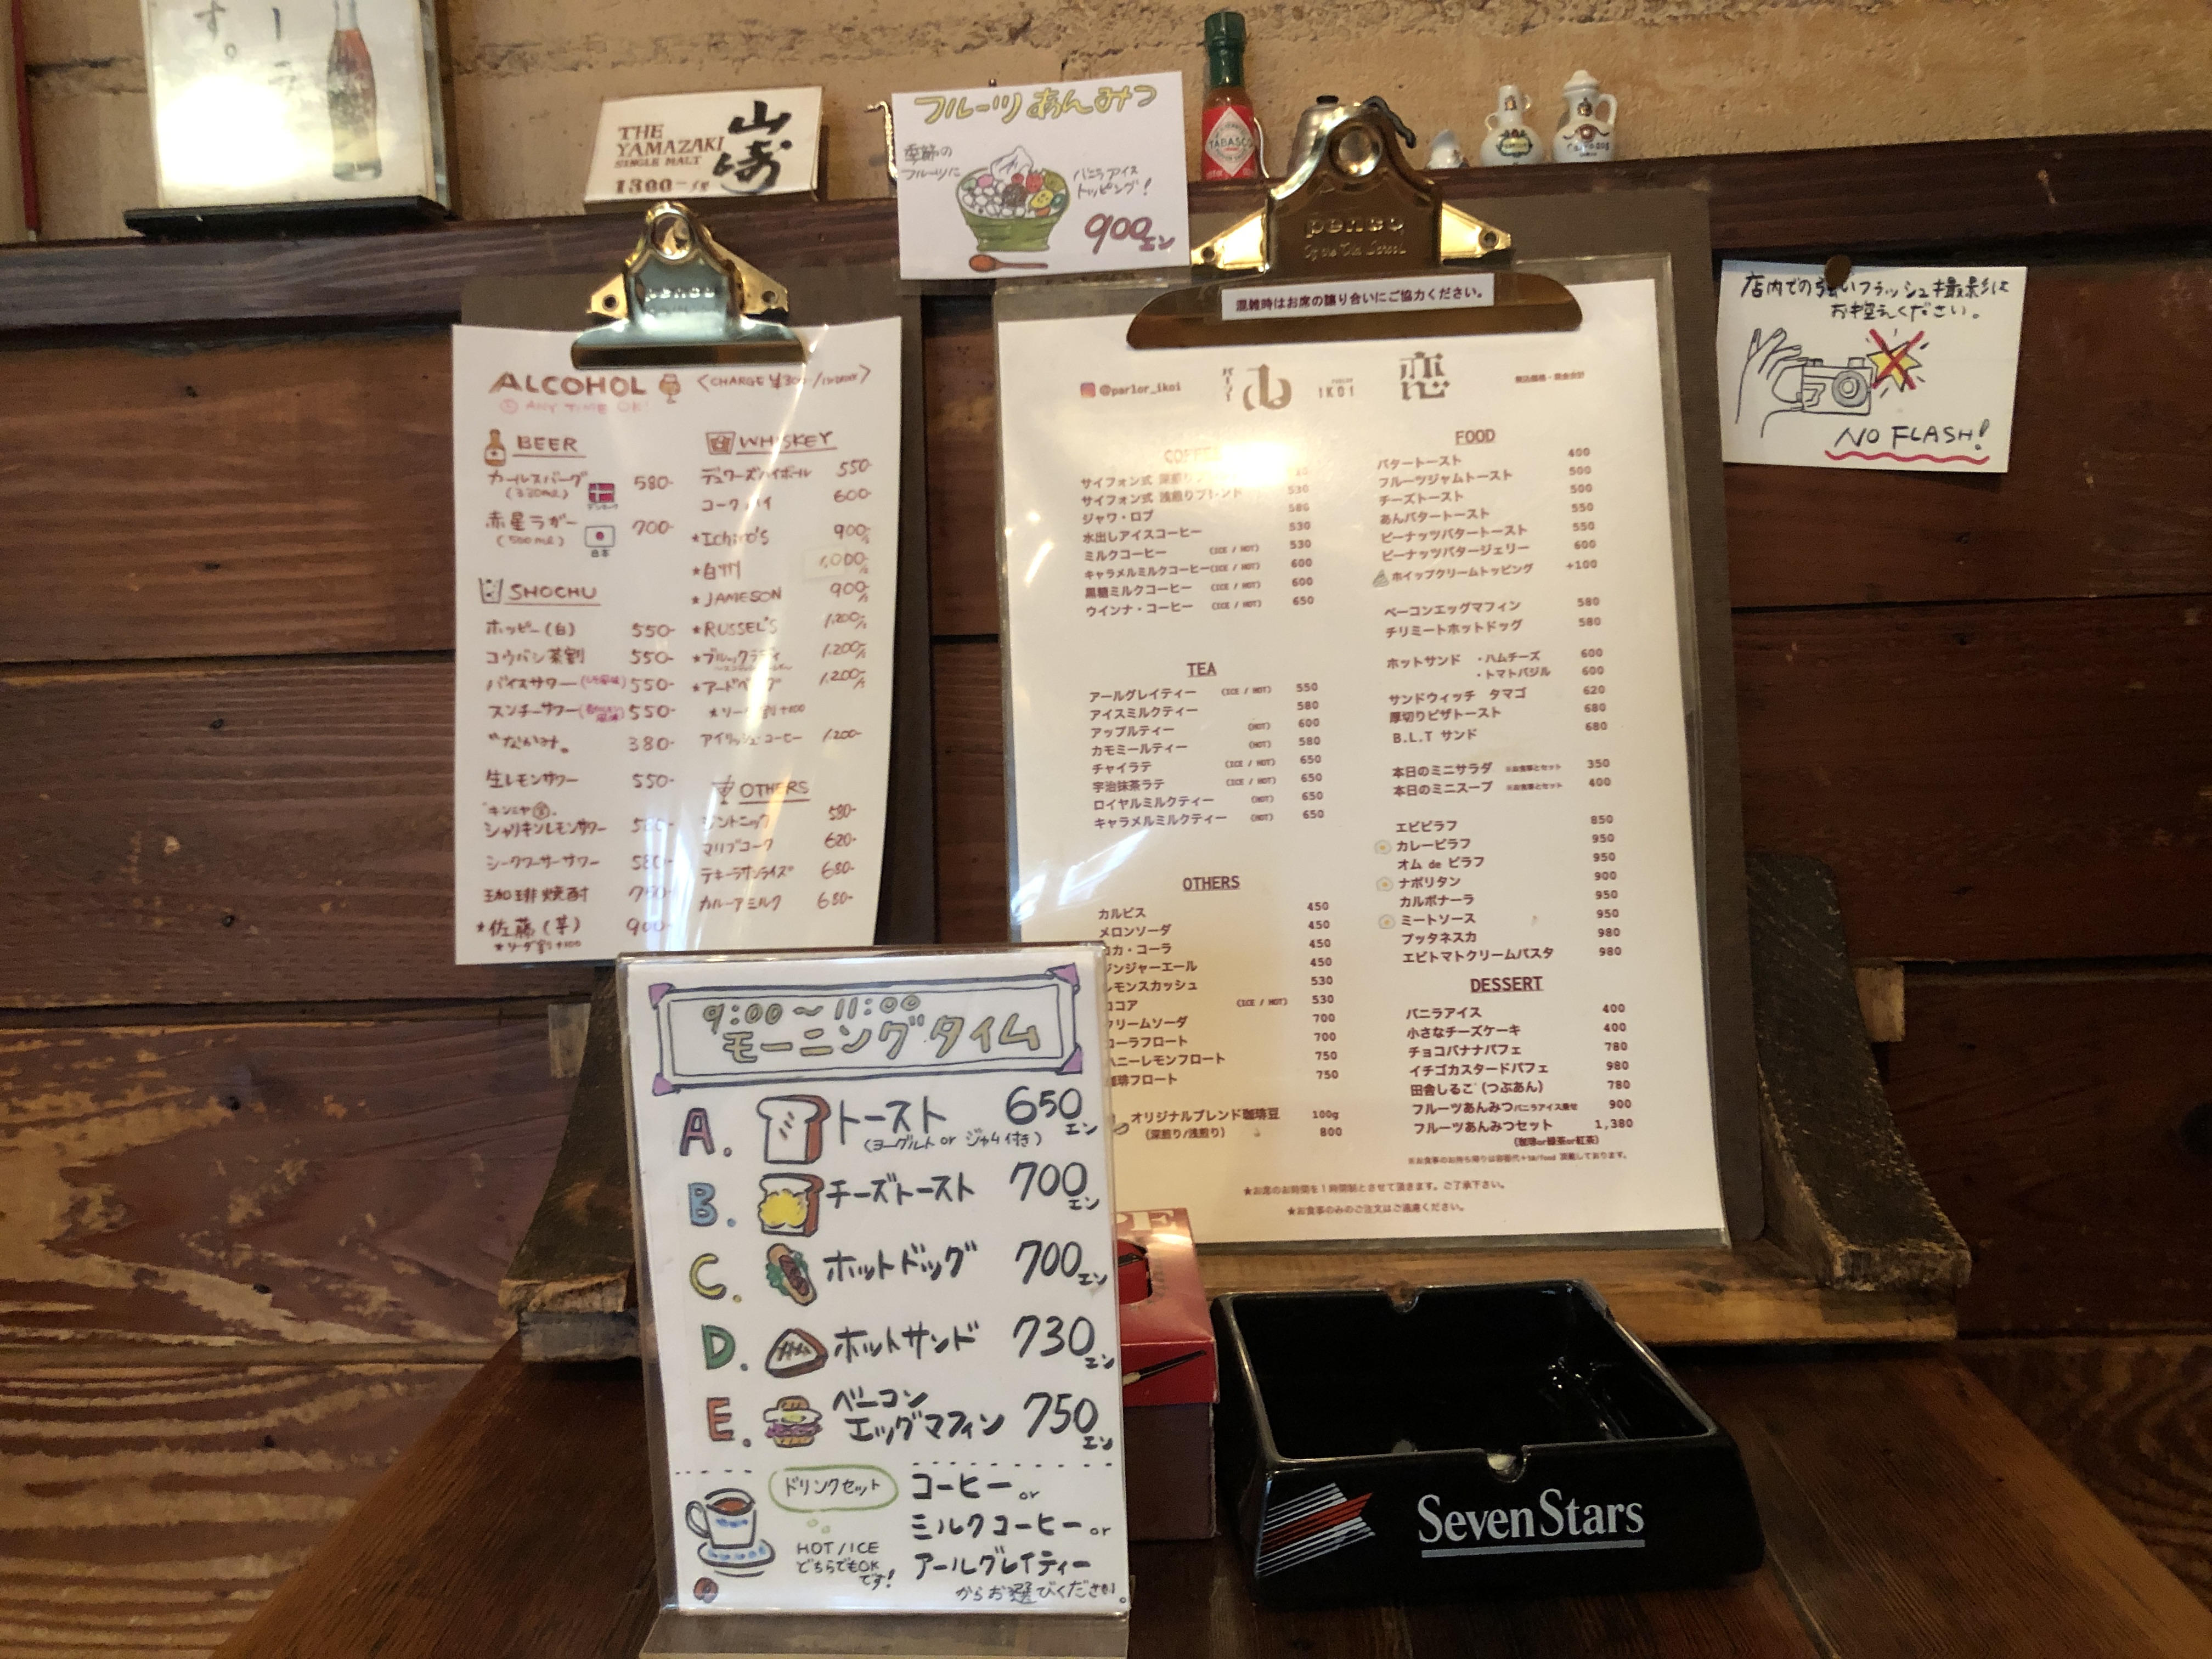 す。
THE
YAMAZAKI
SINGLE MALT
山崎
1300-
フルーツあんみつ
季節の
フルーツに
バニラアイス
トッピング!
900エン
TABASCO
penco
penco
混雑時はお席の譲り合いにご協力ください。
店内での強いフラッシュ撮影は
お控えください。
NO FLASH!
ALCOHOL <CHARGE ¥300/1DRINK>
ANY TIME OK!
BEER
カールスバーグ 580-
(330ml)
赤星ラガー 700-
(500ml) 日本
SHOCHU
ホッピー(白) 550-
コウバシ茶割 550-
バイスサワー 550-
スンチーサワー 550-
"なかみ。 380-
生レモンサワー 550-
"キンミヤ
シャリキンレモンサワー 580-
シークワーサーサワー 580-
珈琲焼酎 750-
★佐藤(芋) 900-
★ソーダ割+100
WHISKEY
デュワーズハイボール 550-
コークハイ 600-
★Ichiro's 900
★白州 1,000
★JAMESON 900
★RUSSEL'S 1,200
★ブルックラディ 1,200
★アードベッグ 1,200
★ソーダ割+100
アイリッシュ・コーヒー 1,200-
OTHERS
ジントニック 580-
マリブコーク 620-
テキーラサンライズ 680-
カルーアミルク 680-
@parlor_ikoi
パーラー
IKOI
恋
COFFEE
サイフォン式 深煎り
サイフォン式 浅煎りブレンド 530
ジャワ・ロブ 580
水出しアイスコーヒー 530
ミルクコーヒー (ICE / HOT) 530
キャラメルミルクコーヒー (ICE / HOT) 600
黒糖ミルクコーヒー (ICE / HOT) 600
ウインナ・コーヒー (ICE / HOT) 650
TEA
アールグレイティー (ICE / HOT) 550
アイスミルクティー 580
アップルティー (HOT) 600
カモミールティー (HOT) 580
チャイラテ (ICE / HOT) 650
宇治抹茶ラテ (ICE / HOT) 650
ロイヤルミルクティー (HOT) 650
キャラメルミルクティー (HOT) 650
OTHERS
カルピス 450
メロンソーダ 450
コカ・コーラ 450
ジンジャーエール 450
レモンスカッシュ 530
ココア (ICE / HOT) 530
クリームソーダ 700
コーラフロート 700
ハニーレモンフロート 750
珈琲フロート 750
オリジナルブレンド珈琲豆 100g
(深煎り/浅煎り) 800
FOOD
バタートースト 400
フルーツジャムトースト 500
チーズトースト 500
あんバタートースト 550
ピーナッツバタートースト 550
ピーナッツバタージェリー 600
ホイップクリームトッピング +100
ベーコンエッグマフィン 580
チリミートホットドッグ 580
ホットサンド ・ハムチーズ 600
・トマトバジル 600
サンドウィッチ タマゴ 620
厚切りピザトースト 680
B.L.T サンド 680
本日のミニサラダ ※お食事とセット 350
本日のミニスープ ※お食事とセット 400
エビピラフ 850
カレーピラフ 950
オム de ピラフ 950
ナポリタン 900
カルボナーラ 950
ミートソース 950
プッタネスカ 980
エビトマトクリームパスタ 980
DESSERT
バニラアイス 400
小さなチーズケーキ 400
チョコバナナパフェ 780
イチゴカスタードパフェ 980
田舎しるこ(つぶあん) 780
フルーツあんみつ バニラアイス乗せ 900
フルーツあんみつセット 1,380
(珈琲or緑茶or紅茶)
★お席のお時間を1時間制とさせて頂きます。ご了承下さい。
★お食事のみのご注文はご遠慮ください。
9:00～11:00
モーニングタイム
A. トースト 650エン
(ヨーグルト or ジャム付き)
B. チーズトースト 700エン
C. ホットドッグ 700エン
D. ホットサンド 730エン
E. ベーコン
エッグマフィン 750エン
ドリンクセット
HOT/ICE
どちらでもOK
です!
コーヒー or
ミルクコーヒー or
アールグレイティー
からお選びください。
SevenStars